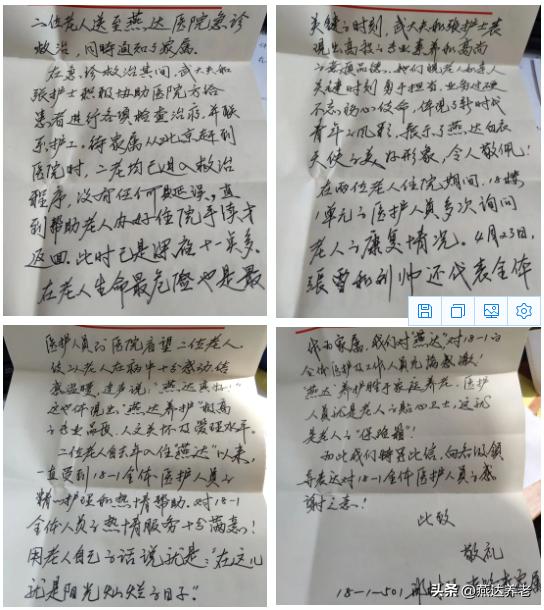 二位老人送至燕达医院急诊
救治,同时通知了家属。
在急诊救治其间,武大夫和
张护士积极协助医院方给
患者进行各项检查治疗,并联
系护工。待家属从北京赶到
医院时,二老均已进入救治
程序,没有任何耽误。直
到帮助老人办好住院手续才
返回。此时已是深夜十一点多。
在老人生命最危险也是最
关键的时刻,武大夫和张护士表
现出高超的专业素养和高尚
的道德品德。她们视老人如亲人
关键时刻勇于担当,业务过硬
不忘初心使命,体现了新时代
青年的风彩,展示了燕达白衣
天使的美好形象,令人敬佩!
在两位老人住院期间,18楼
1单元的医护人员多次询问
老人的康复情况。4月23日,
张曹和刘帅还代表全体
医护人员到医院看望二位老人,
使在老人在病中十分感动倍
感温暖,连声说:“燕达真好!”
这也体现出“燕达养护”极高
的专业品质、人文关怀及管理水平。
二位老人自去年入住“燕达”以来,
一直受到18-1全体医护人员的
精心护理和热情帮助。对18-1
全体人员的热情服务十分满意!
用老人自己的话说就是:“在这儿
就是阳光灿烂的日子”。
作为家属,我们对“燕达”对18-1的
全体医护及工作人员充满感激!
“燕达”养护胜于家庭养老。医护
人员就是老人的贴心卫士,这就
是老人的“保险箱”!
为此我们特写此信,向各级领
导表达对18-1全体医护人员的感
谢之意!
此致
敬礼
18-1-501
头条 @燕达养老